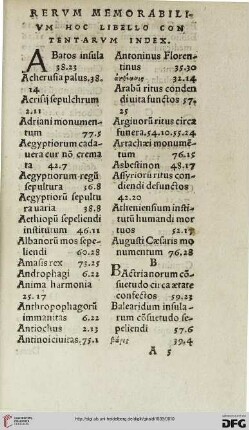 RERVM MEMORABILI
VM HOC LIBELLO CON
TENTARVM INDEX.
ABatos insula
38.23
Acherusia palus.38.
14
Acrisij sepulchrum
2.11
Adriani monumen-
tum 77.5
Aegyptiorum cada-
uera cur nō crema
ta 42.7
Aegyptiorum regū
sepultura 36.8
Aegyptiorū sepultu
ra uaria 38.8
Aethiopū sepeliendi
institutum 46.11
Albanorū mos sepe-
liendi 60.28
Amasis rex 73.25
Androphagi 6.22
Anima harmonia
25.17
Anthropophagorū
immanitas 6.22
Antiochus 2.13
Antinoi ciuitas, 75.1
Antoninus Floren-
tinus 35.30
32.14
Arabū ritus conden
di uita functos 57.
25
Argiuorū ritus circa
funera, 54.10.55.24
Artachæi monumē-
tum 76.15
Asbestinon 48.17
Assyriorū ritus con-
diendi defunctos
42.20
Atheniensium insti-
tutū humandi mor
tuos 52.17
Augusti Cæsaris mo
numentum 76.28
B
BActrianorum cō-
suetudo circa ætate
confectos 59.23
Balearidum insula-
rum cōsuetudo se-
peliendi 57.6
39.4
A 5
DFG